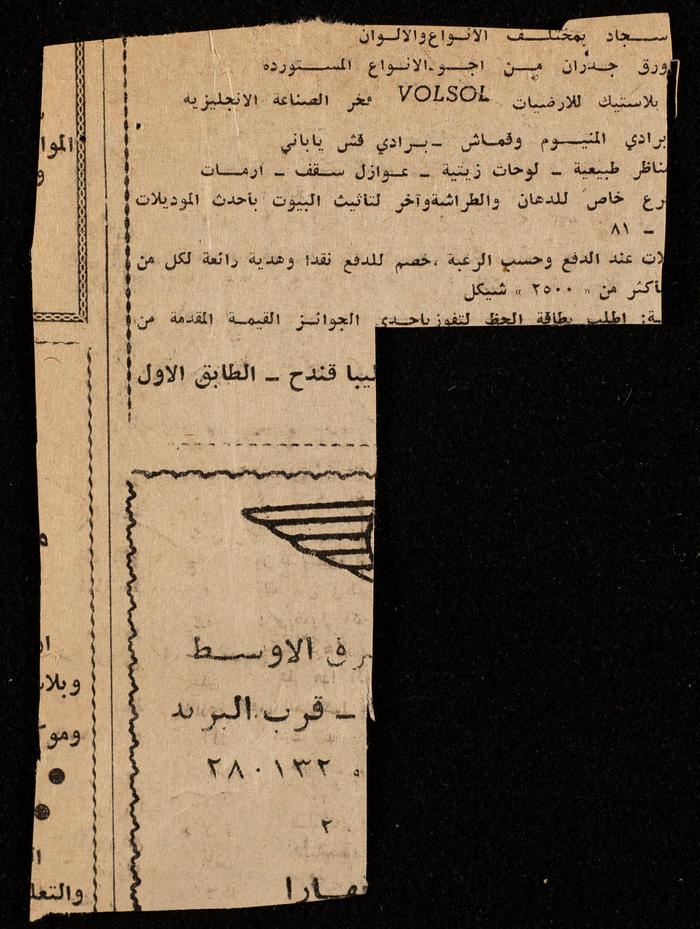 سجاد بمختلف الانواع والالوان
ورق جدران من اجود الانواع المستورده
بلاستيك للارضيات VOLSOL فخر الصناعة الانجليزيه
برادي المنيوم وقماش - برادي قش ياباني
مناظر طبيعية - لوحات زيتية - عوازل سقف - ارمات
رع خاص للدهان والطراشة وآخر لتأثيث البيوت بأحدث الموديلات
- ٨١
لات عند الدفع وحسب الرغبة ، خصم للدفع نقدا وهدية رائعة لكل من
أكثر من « ٢٥٠٠ » شيكل
ـة: اطلب بطاقة الحظ لتفوز باحدى الجوائز القيمة المقدمة من
ليبا قندح - الطابق الاول
رق الاوسط
- قرب البريد
٢٨٠١٣٢
٢
هارا
الموا
و
وبلا
ومو
والتعل